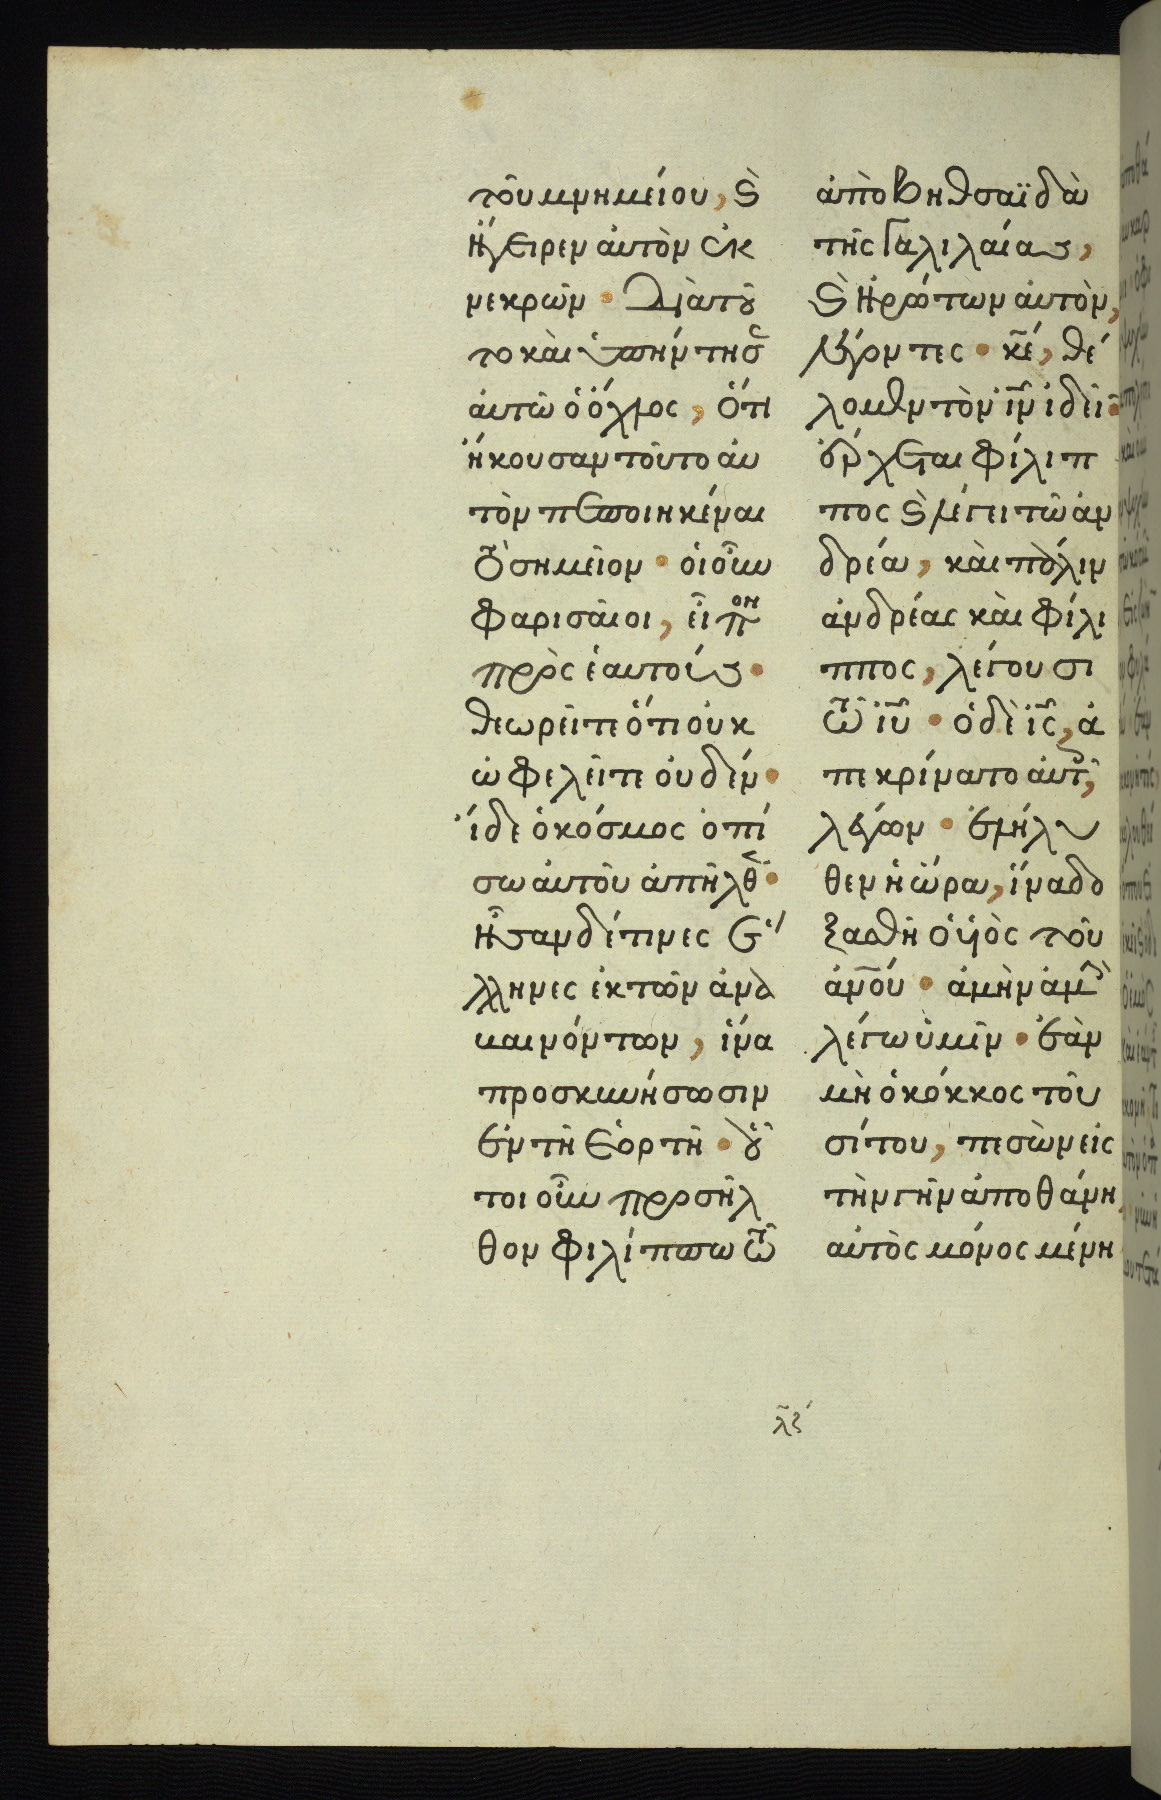 τοῦ μνημείου, ϗ
ἤγειρεν αὐτὸν ἐκ
νεκρῶν · Διὰ τοῦ
το καὶ ὑπήντησε
αὐτῷ ὁ ὄχλος, ὅτι
ἤκουσαν τοῦτο αὐ
τὸν πεποιηκέναι
τὸ σημεῖον · οἱ οὖν
φαρισαῖοι, εἶπον
πρὸς ἑαυτούς ·
θεωρεῖτε ὅτι οὐκ
ὠφελεῖτε οὐδέν ·
ἴδε ὁ κόσμος ὀπί
σω αὐτοῦ ἀπῆλθεν ·
Ἦσαν δέ τινες ἕ
λληνες ἐκ τῶν ἀνα
βαινόντων, ἵνα
προσκυνήσωσιν
ἐν τῇ ἑορτῇ · οὗ
τοι οὖν προσῆλ
θον φιλίππω τῶ
ἀπὸ Βηθσαϊδὰ
τῆς Γαλιλαίας,
ϗ ἠρώτων αὐτὸν,
λέγοντες · κ̅έ, θέ
λομεν τὸν ι̅ν ἰδεῖν ·
ἔρχεται Φίλιπ
πος ϗ λέγει τῶ ἀν
δρέα, καὶ πάλιν
ἀνδρέας καὶ φίλι
ππος, λέγουσι
τῶ ι̅υ · ὁ δὲ ι̅ς, ἀ
πεκρίνατο αὐτοῖς,
λέγων · ἐλήλυ
θεν ἡ ὥρα, ἵνα δο
ξασθῇ ὁ ὑιὸς τοῦ
ἀν̅ου · ἀμὴν ἀμὴν
λέγω ὑμῖν · ἐὰν
μὴ ὁ κόκκος τοῦ
σίτου, πεσὼν εἰς
τὴν γῆν ἀποθάνη,
αὐτὸς μόνος μένη
λζ